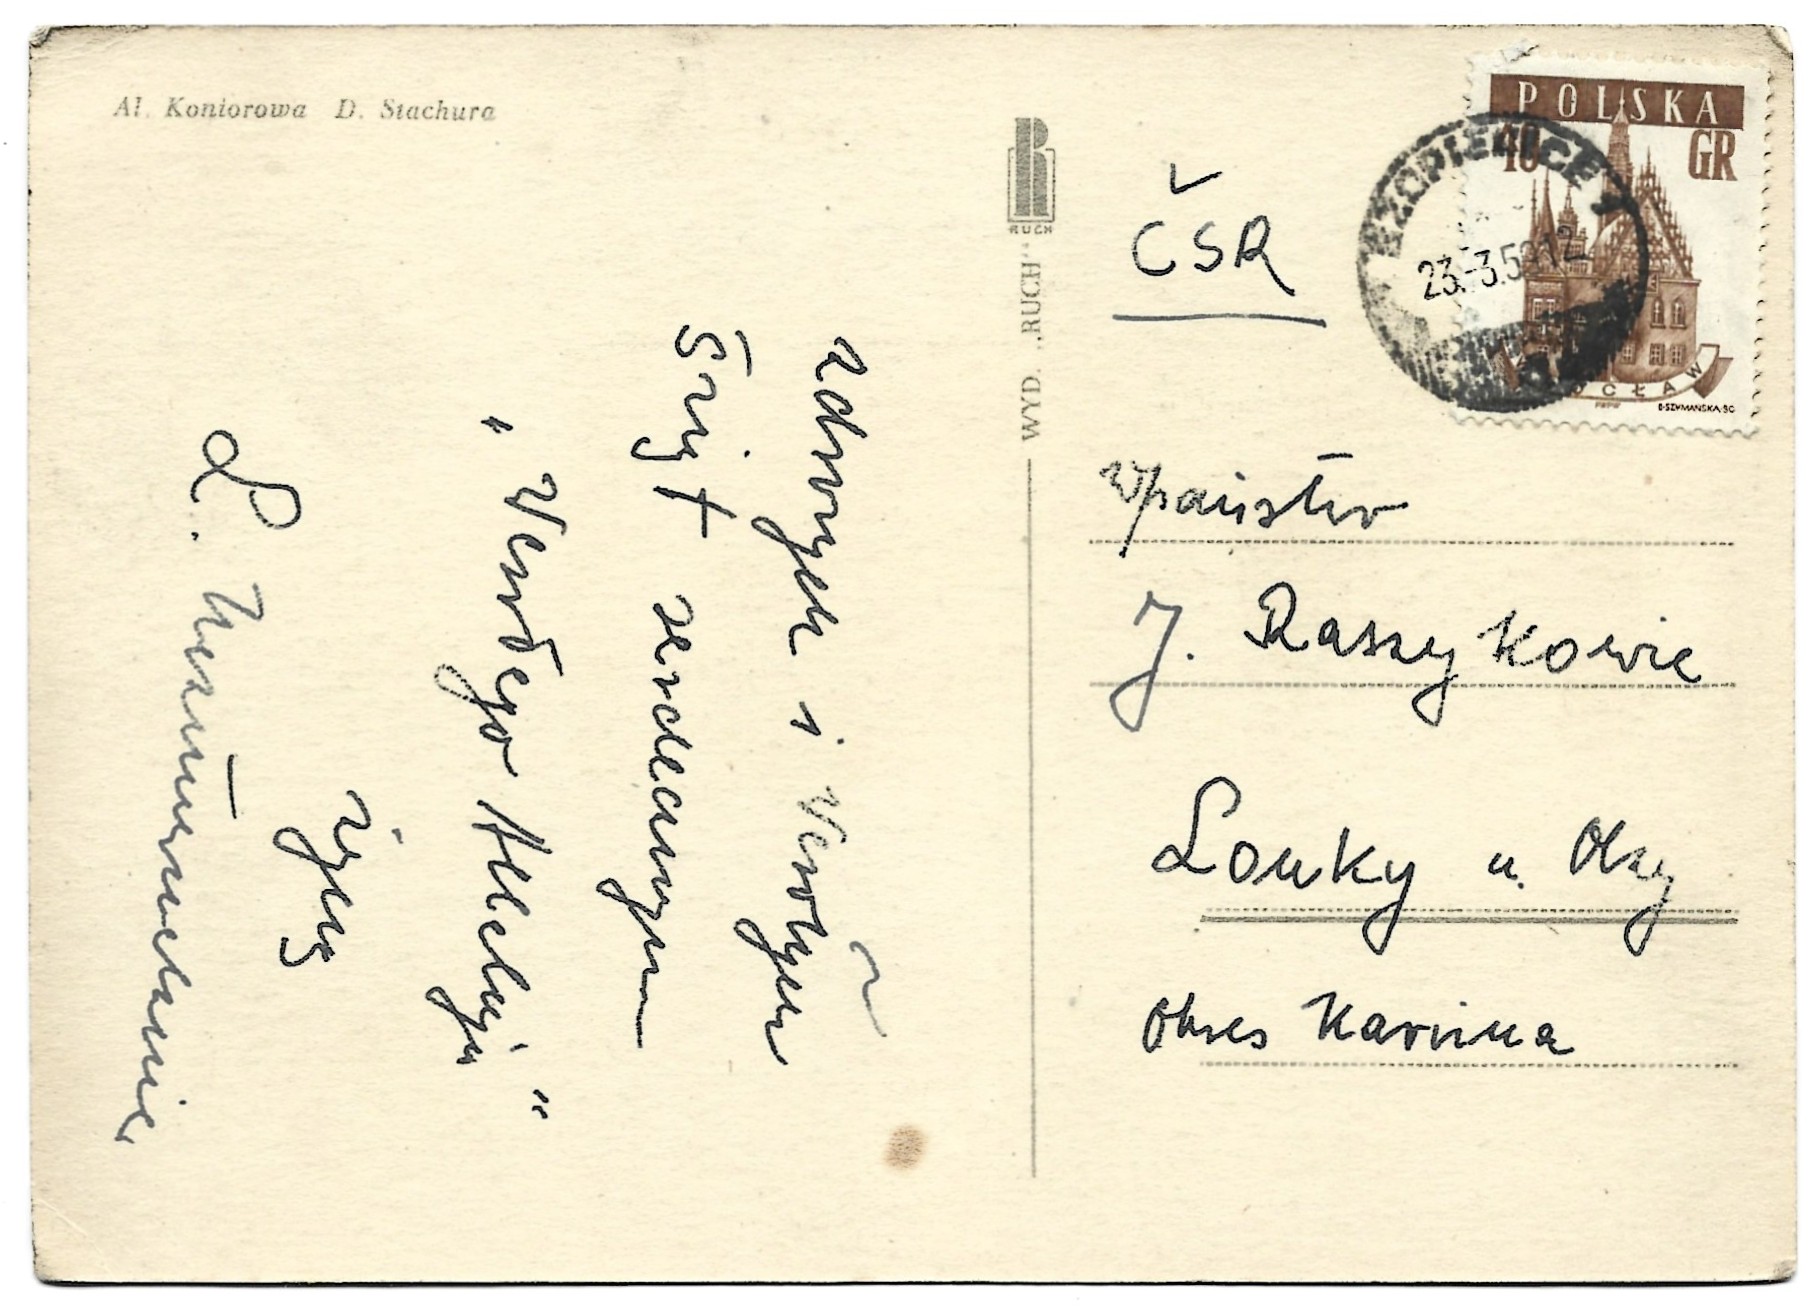 Al. Koniorowa D. Stachura
Zdrowych i Wesołych
Świąt serdecznym
"Wesołego Alleluja"
życzą
L.
RUCH
WYD. „RUCH"
POLSKA
40 GR
SZOPIENICE
23.-3.59 12
WROCŁAW
B·SZYMAŃSKA·SC
ČSR
WPaństwo
J. Raszykowie
Louky n. Olzy
Okres Karvina